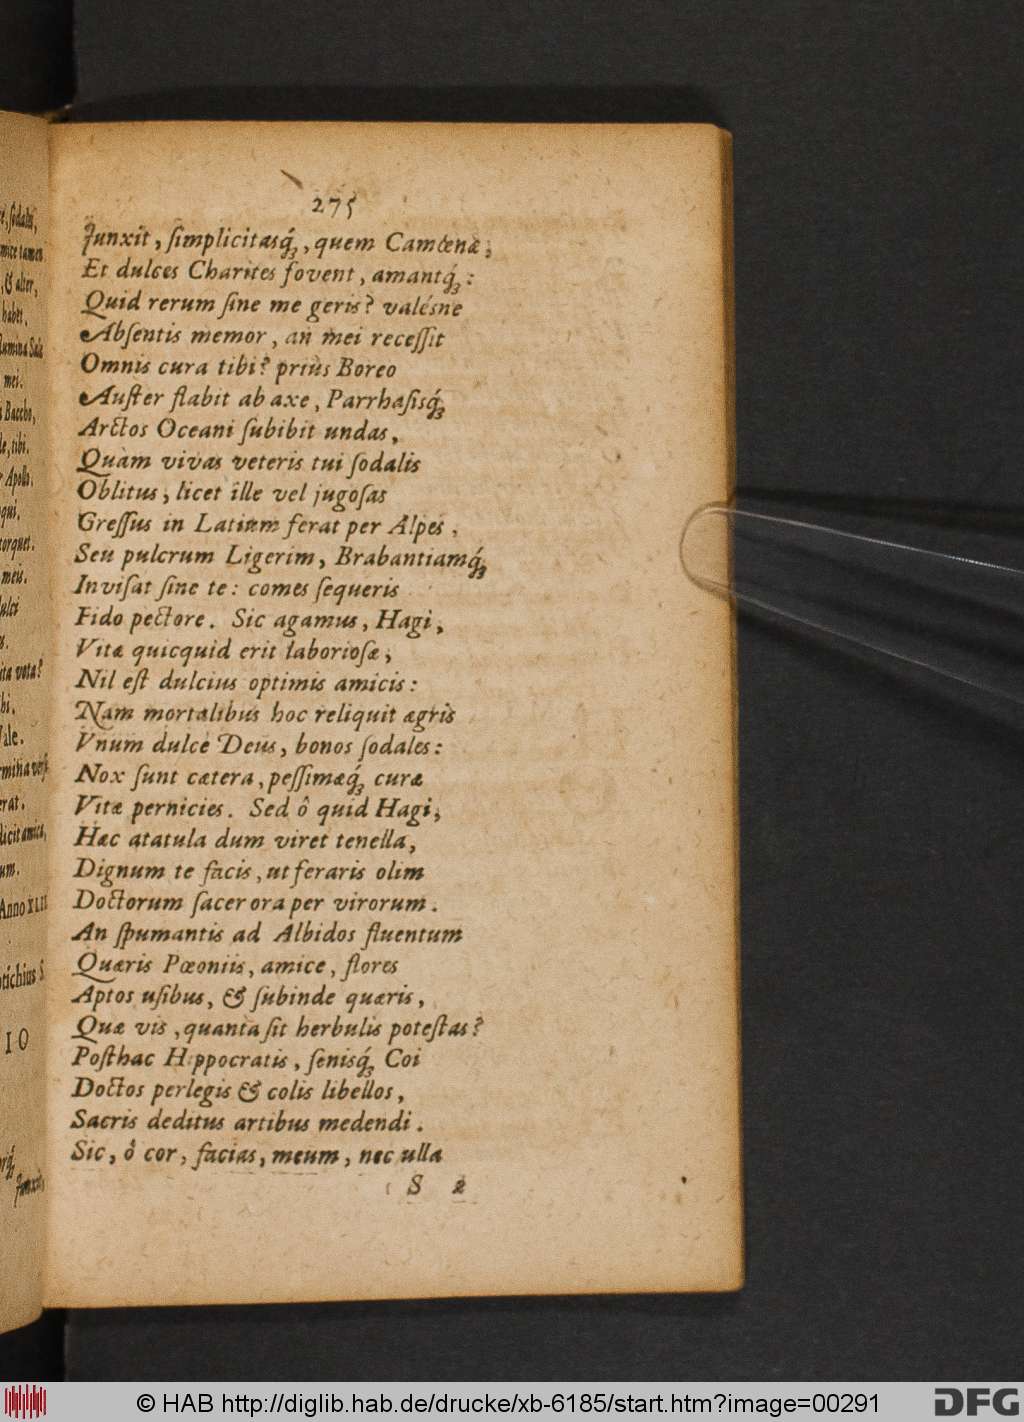 275
Junxit, ſimplicitasq́ꝫ, quem Camœnæ,
Et dulces Charites fovent, amantq́ꝫ:
Quid rerum ſine me geris? valésne
Abſentis memor, an mei receſſit
Omnis cura tibi? priùs Boreo
Auſter flabit ab axe, Parrhaſisq́ꝫ
Arctos Oceani ſubibit undas,
Quàm vivas veteris tui ſodalis
Oblitus, licet ille vel jugoſas
Greſſus in Latium ferat per Alpes,
Seu pulcrum Ligerim, Brabantiamq́ꝫ
Inviſat ſine te: comes ſequeris
Fido pectore. Sic agamus, Hagi,
Vitæ quicquid erit laborioſæ,
Nil eſt dulcius optimis amicis:
Nam mortalibus hoc reliquit ægris
Vnum dulce Deus, bonos ſodales:
Nox ſunt cætera, peſſimæq́ꝫ curæ
Vitæ pernicies. Sed ô quid Hagi,
Hæc ætatula dum viret tenella,
Dignum te facis, ut feraris olim
Doctorum ſacer ora per virorum.
An ſpumantis ad Albidos fluentum
Quæris Pœoniis, amice, flores
Aptos uſibus, & ſubinde quæris,
Quæ vis, quanta ſit herbulis poteſtas?
Poſthac Hippocratis, ſenisq́ꝫ Coi
Doctos perlegis & colis libellos,
Sacris deditus artibus medendi.
Sic, ô cor, facias, meum, nec ulla
S 2
© HAB http://diglib.hab.de/drucke/xb-6185/start.htm?image=00291
DFG